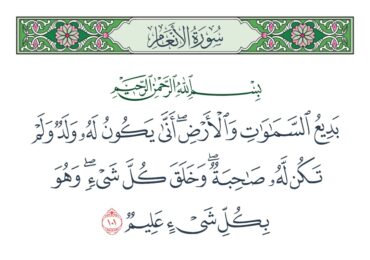 سُورَةُ الْأَنْعَامِ
بِسْمِ اللَّهِ الرَّحْمَٰنِ الرَّحِيمِ
بَدِيعُ ٱلسَّمَٰوَٰتِ وَٱلْأَرْضِۖ أَنَّىٰ يَكُونُ لَهُۥ وَلَدٌ وَلَمْ
تَكُن لَّهُۥ صَٰحِبَةٌۖ وَخَلَقَ كُلَّ شَىْءٍۖ وَهُوَ
بِكُلِّ شَىْءٍ عَلِيمٌ ١٠١